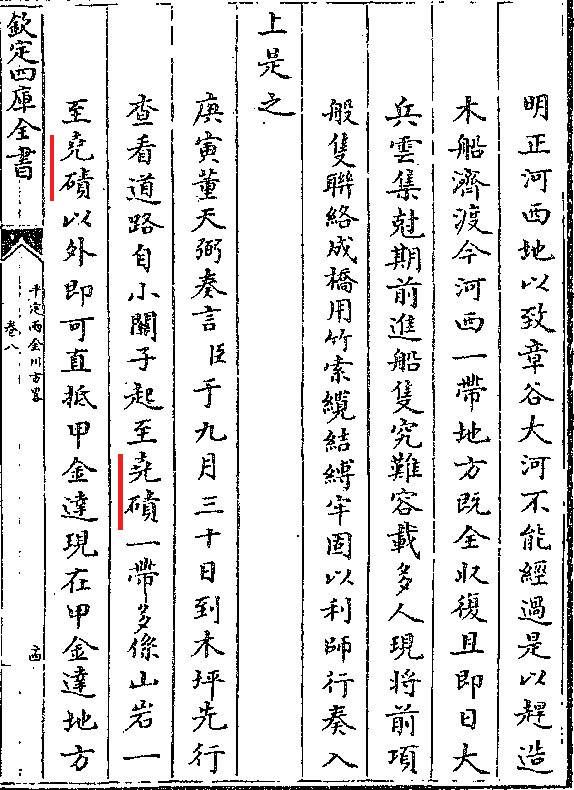 明正河西地以致章谷大河不能經過是以趕造
木船濟渡今河西一帶地方既全收復且即日大
兵雲集尅期前進船隻究難容載多人現將前項
船隻聯絡成橋用竹索纜結縛牢固以利師行奏入
上是之
庚寅董天弼奏言臣于九月三十日到木坪先行
查看道路自小關子起至堯磧一帶多係山岩一
至堯磧以外即可直抵甲金達現在甲金達地方
欽定四庫全書
平定兩金川方畧
卷八